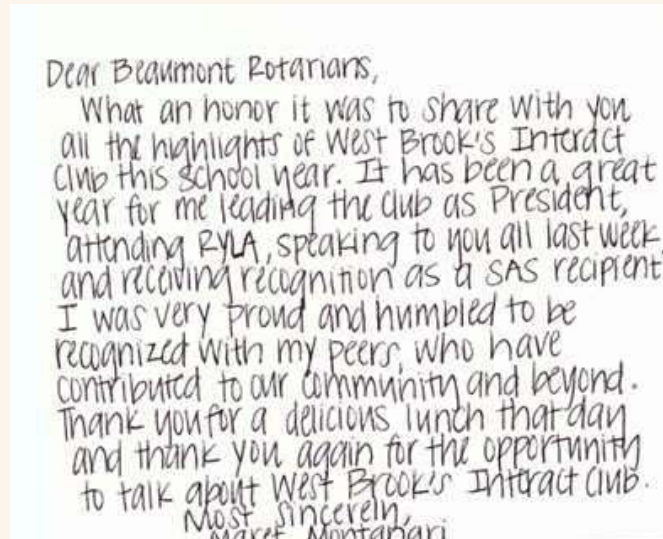 Dear Beaumont Rotarians,
What an honor it was to share with you
all the highlights of West Brook's Interact
Club this school year. It has been a great
year for me leading the club as President,
attending RYLA, speaking to you all last week,
and receiving recognition as a SAS recipient
I was very proud and humbled to be
recognized with my peers, who have
contributed to our community and beyond.
Thank you for a delicious lunch that day
and thank you again for the opportunity
to talk about West Brook's Interact Club.
Most Sincerely,
Montanari